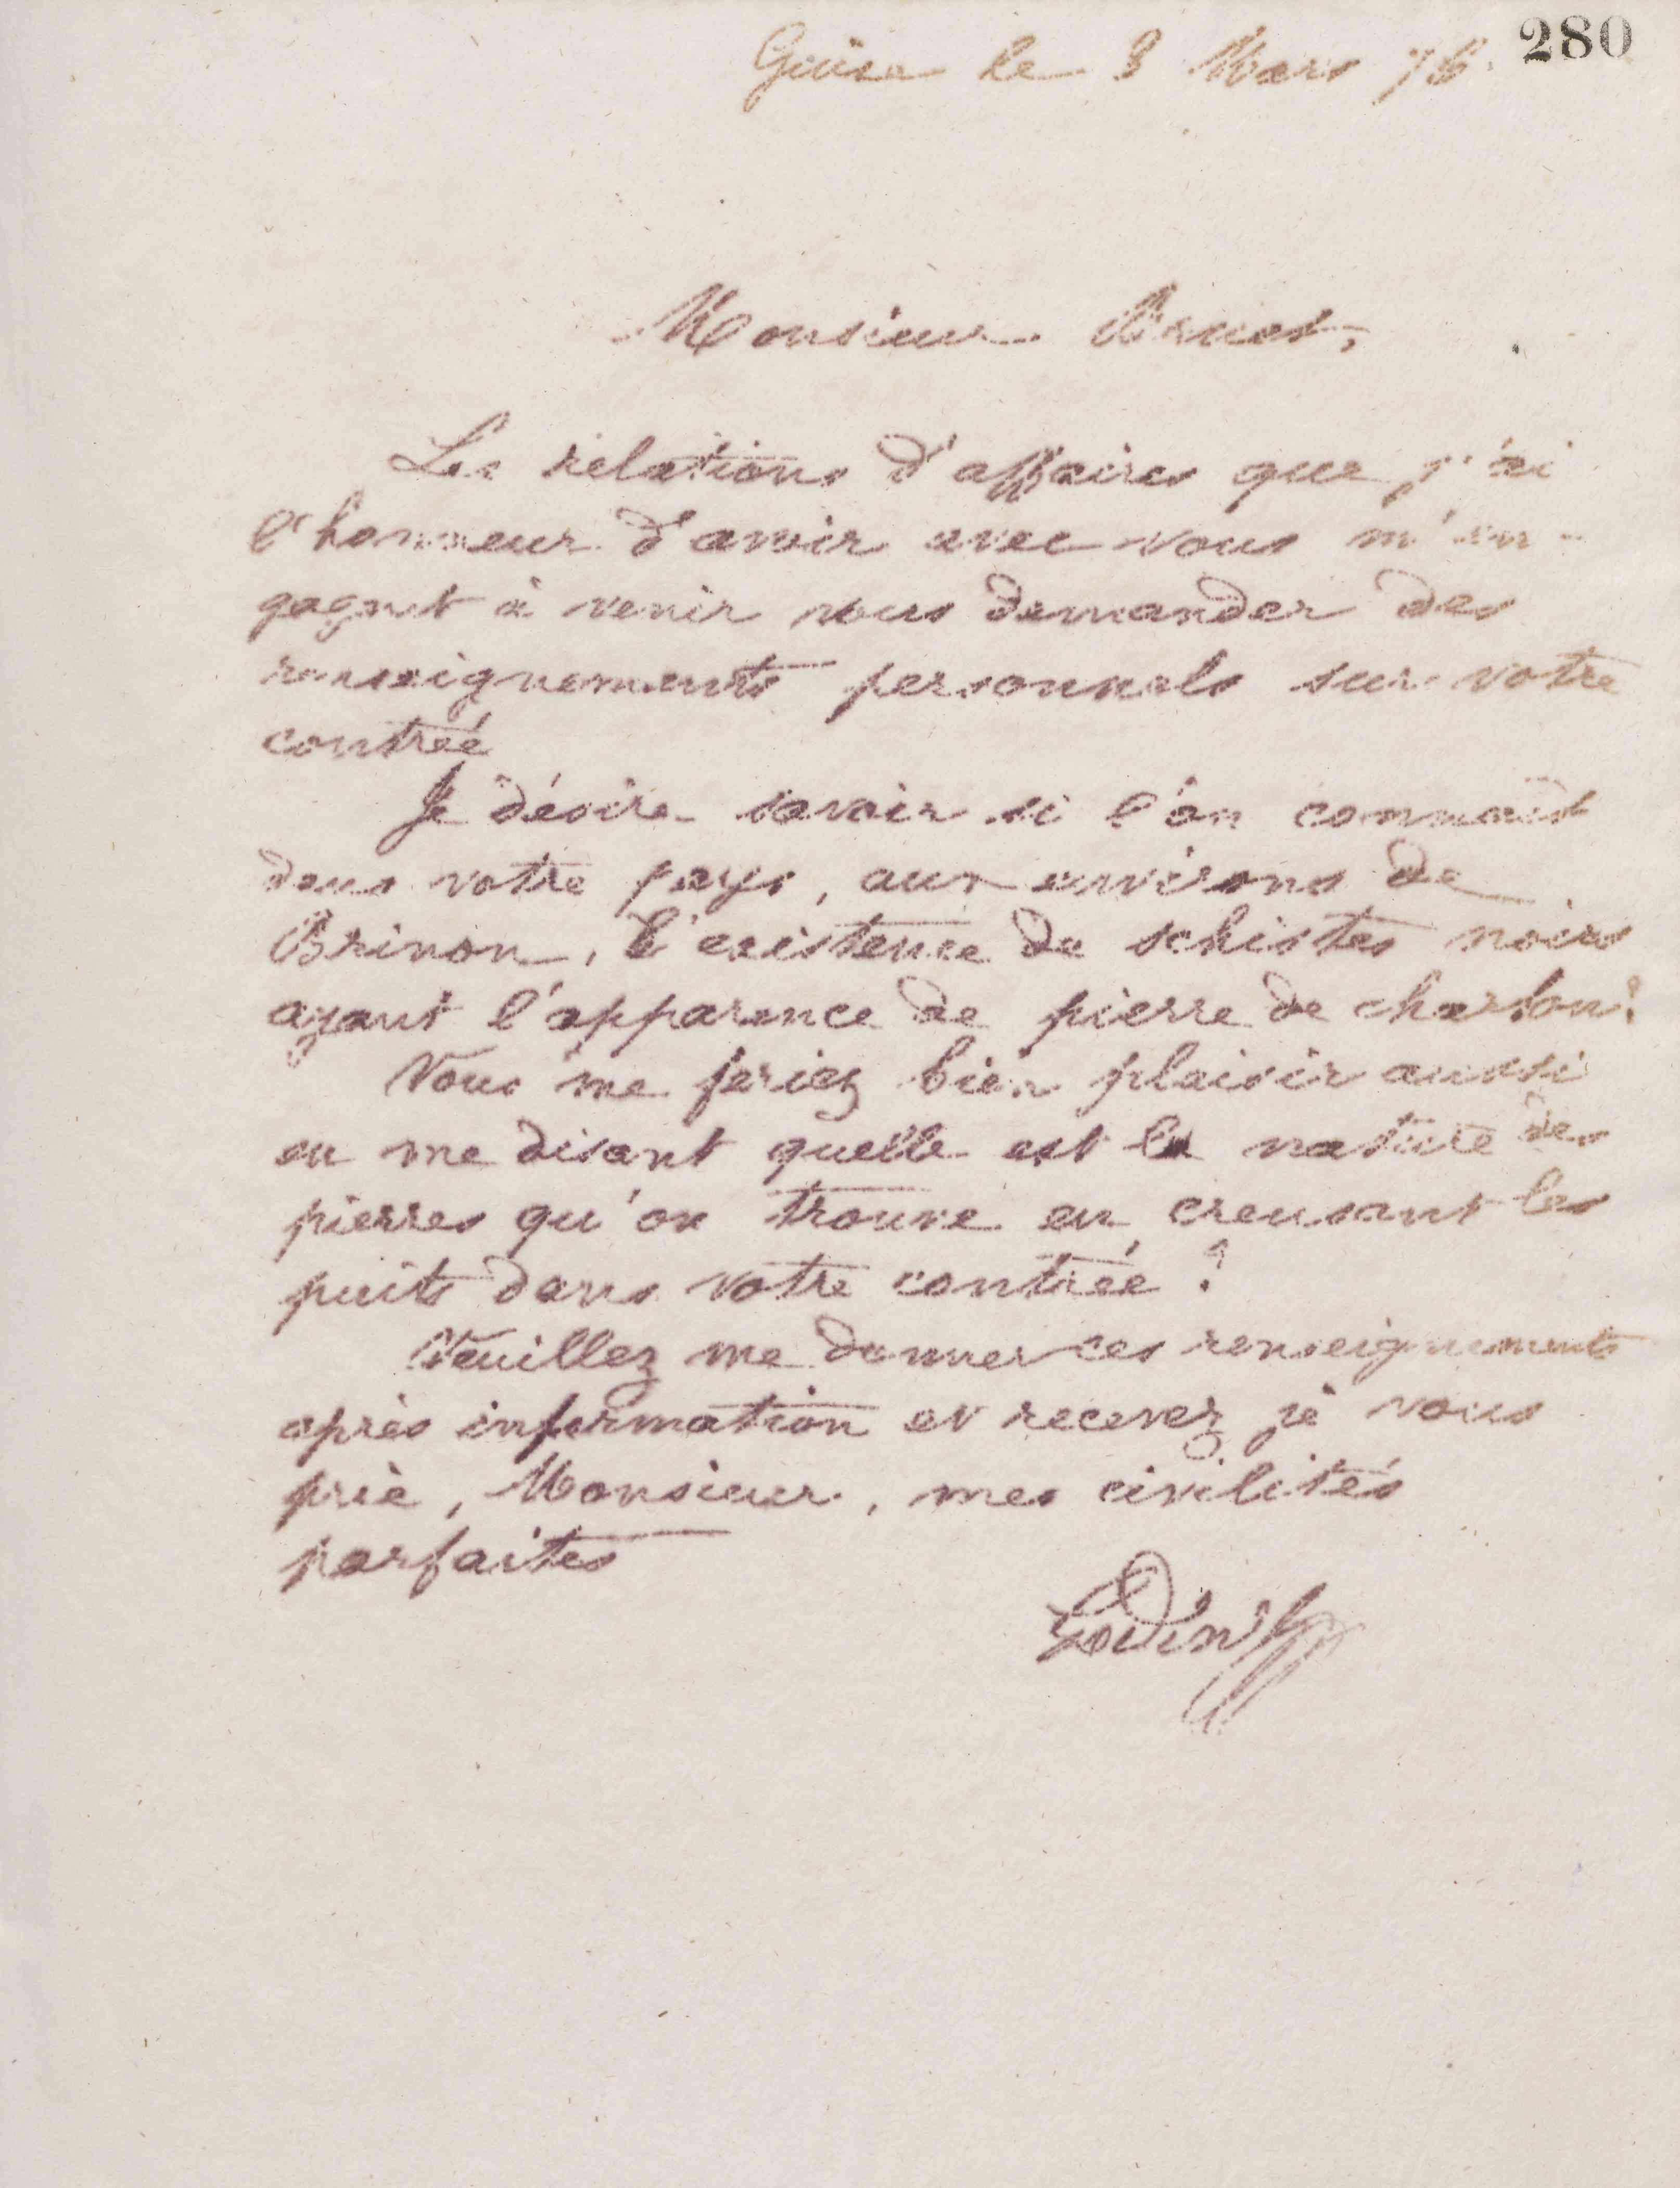 280
Guise le 8 Mars 76.
Monsieur
Les relations d'affaires que j'ai
l'honneur d'avoir avec vous m'en-
gagent à venir vous demander des
renseignements personnels sur votre
contrée
Je désire savoir si l'on connait
dans votre pays, aux environs de
Brinon, l'existence de schistes noirs
ayant l'apparence de pierre de charbon?
Vous me feriez bien plaisir aussi
en me disant quelle est la nature des
pierres qu'on trouve en creusant les
puits dans votre contrée ?
Veuillez me donner ces renseignements
après information et recevez je vous
prie, Monsieur, mes civilités
parfaites
Godin